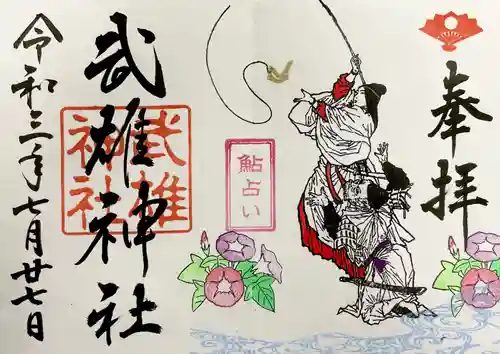 奉拝
鮎占い
武雄神社
武雄神社
令和三年七月廿七日